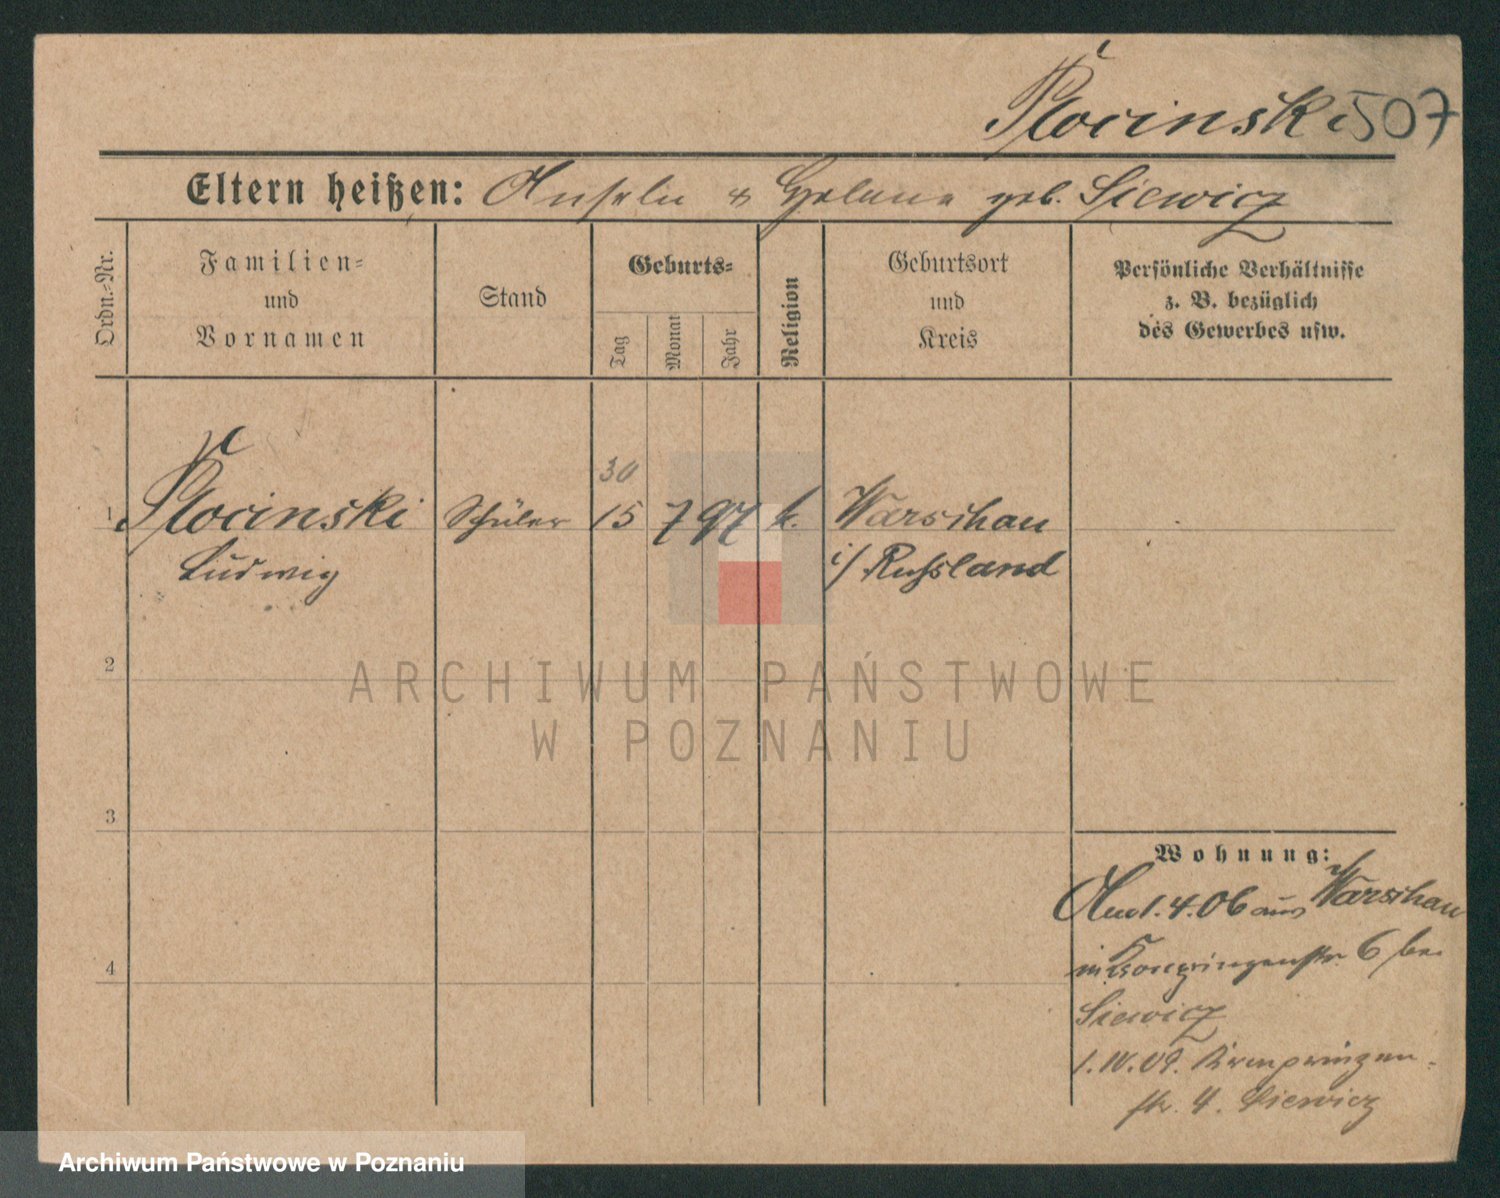 Plocinski 507
Eltern heißen: Anselm & Helene geb. Siewicz
Ordn.-Nr.
Familien-
und
Vornamen
Stand
Geburts-
Tag
Monat
Jahr
Religion
Geburtsort
und
Kreis
Persönliche Verhältnisse
z. B. bezüglich
des Gewerbes usw.
30
1 Plocinski Schüler 15 7 97 k. Warschau
Ludwig i/ Russland
2
3
4
Wohnung:
1.4.06 aus Warschau
in Kronprinzenstr. 6 bei
Siewicz
1.10.09. Kronprinzen-
str. 4. Siewicz
ARCHIWUM PAŃSTWOWE
W POZNANIU
Archiwum Państwowe w Poznaniu